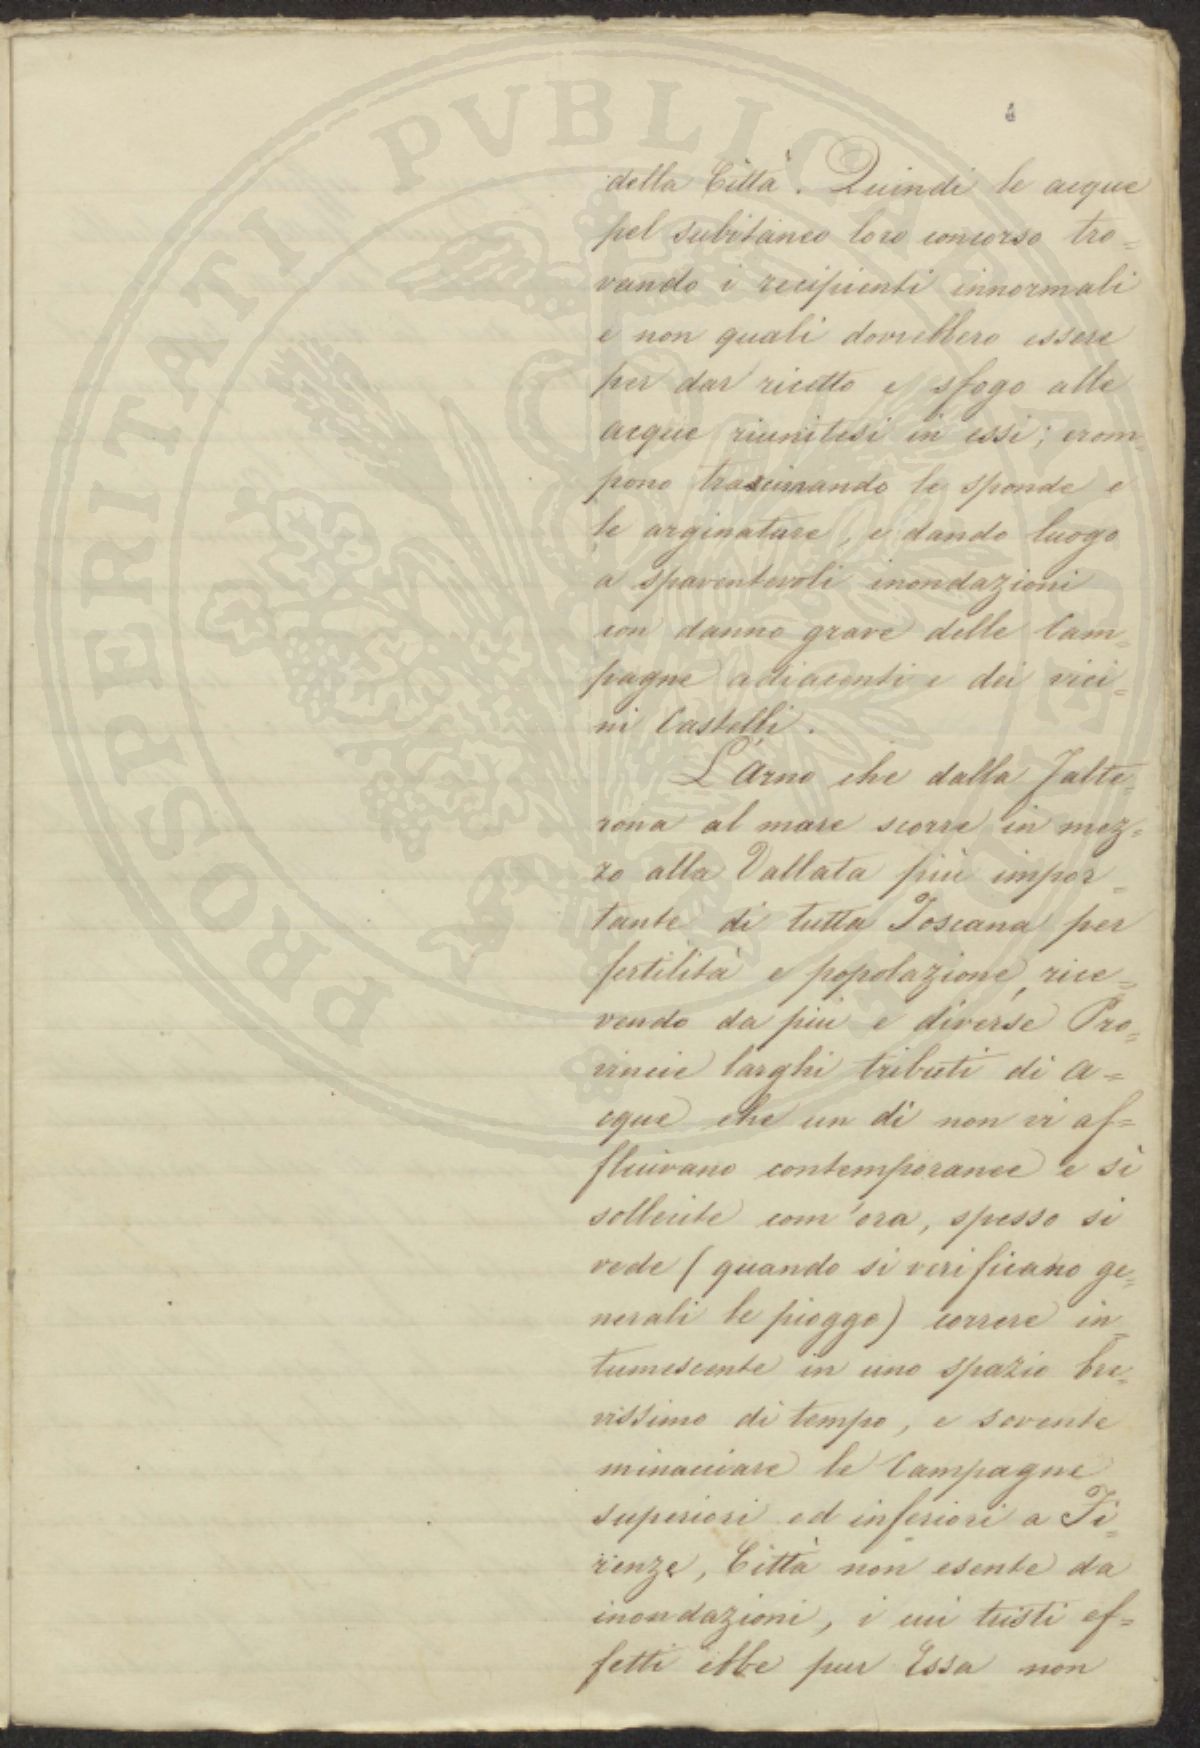 della Città. Quindi le acque
pel subitaneo loro concorso tro=
vando i recipienti innormali
e non quali dovrebbero essere
per dar ricetto e sfogo alle
acque riunitesi in essi; erom=
pono trascinando le sponde e
le arginature, e dando luogo
a spaventevoli inondazioni
con danno grave delle Cam=
pagne adiacenti e dei vici=
ni Castelli.
L'Arno che dalla Falte=
rona al mare scorre in mez=
zo alla Vallata più impor=
tante di tutta Toscana per
fertilità e popolazione, rice=
vendo da più e diverse Pro=
vincie larghi tributi di a=
cque che un dì non vi af=
fluivano contemporanee e sì
sollecite com'ora, spesso si
vede (quando si verificano ge=
nerali le piogge) correre in=
tumescente in uno spazio bre=
vissimo di tempo, e sovente
minacciare le Campagne
superiori ed inferiori a Fi=
renze, Città non esente da
inondazioni, i cui tristi ef=
fetti ebbe pur Essa non
PROSPERITATI PVBLICAE AVGENDAE